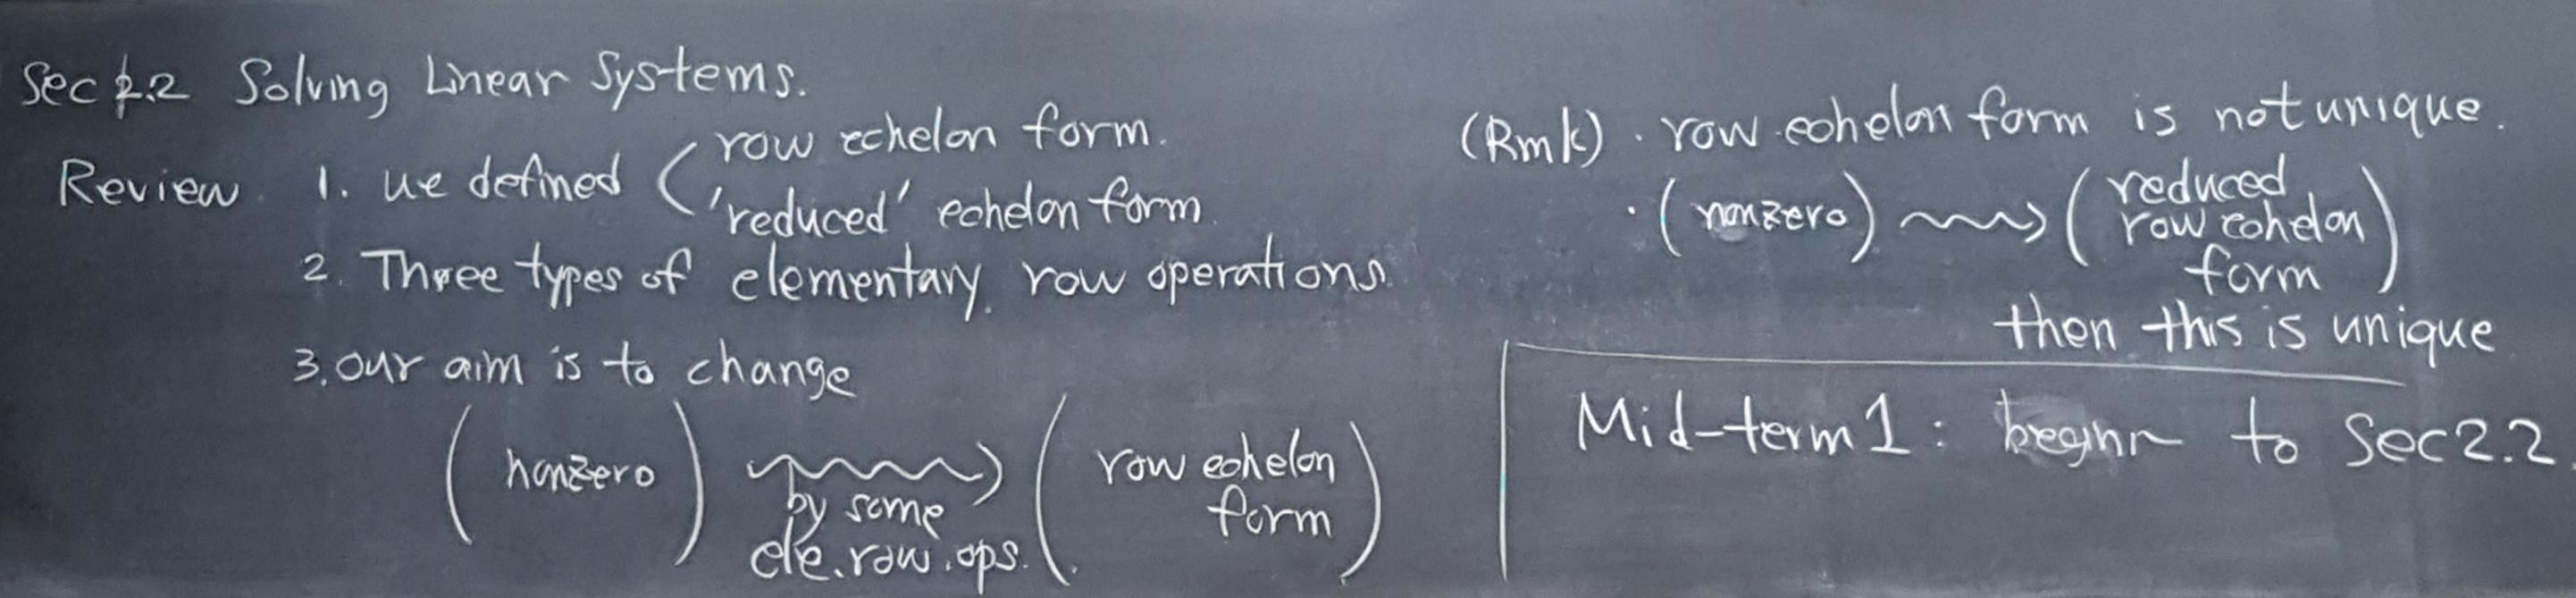 Sec 2.2 Solving Linear Systems.
Review. 1. we defined ( row echelon form.
'reduced' echelon form.
2. Three types of elementary row operations.
3. our aim is to change
( nonzero ) ⇝ ( row echelon
form )
by some
ele. row. ops.
(Rmk) · row echelon form is not unique.
· ( nonzero ) ⇝ ( reduced
row echelon
form )
then this is unique
Mid-term 1 : begin to Sec 2.2.